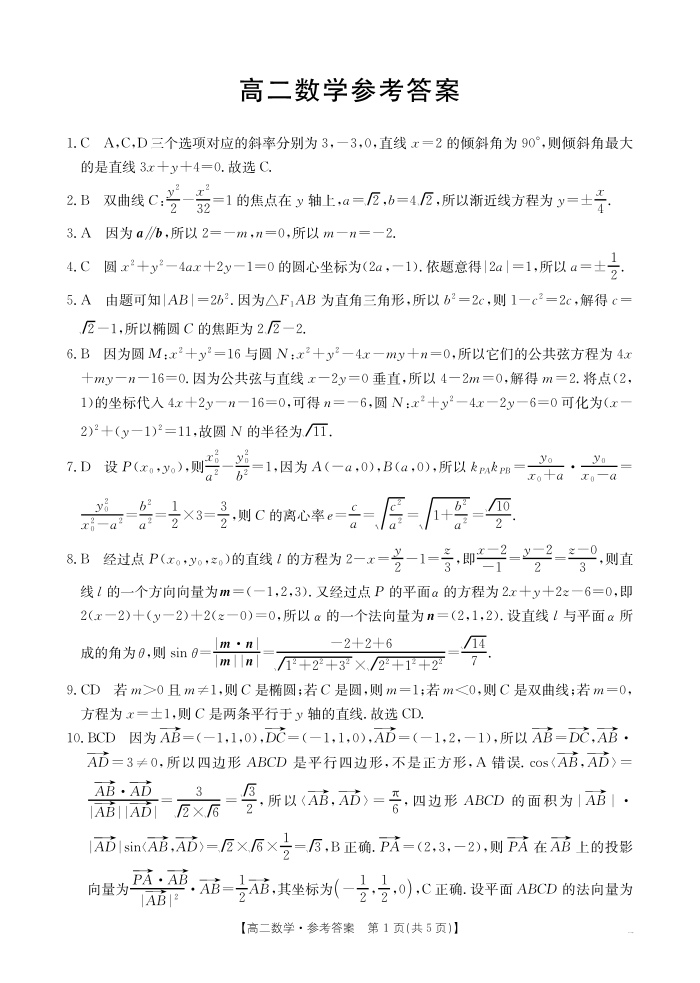 高二数学参考答案
1. C　A,C,D三个选项对应的斜率分别为3,−3,0,直线x=2的倾斜角为90°,则倾斜角最大
的是直线3x+y+4=0.故选C.
2. B　双曲线C:y²/2−x²/32=1的焦点在y轴上,a=√2,b=4√2,所以渐近线方程为y=±x/4.
3. A　因为a∥b,所以2=−m,n=0,所以m−n=−2.
4. C　圆x²+y²−4ax+2y−1=0的圆心坐标为(2a,−1).依题意得|2a|=1,所以a=±1/2.
5. A　由题可知|AB|=2b².因为△F₁AB为直角三角形,所以b²=2c,则1−c²=2c,解得c=
√2−1,所以椭圆C的焦距为2√2−2.
6. B　因为圆M:x²+y²=16与圆N:x²+y²−4x−my+n=0,所以它们的公共弦方程为4x
+my−n−16=0.因为公共弦与直线x−2y=0垂直,所以4−2m=0,解得m=2.将点(2,
1)的坐标代入4x+2y−n−16=0,可得n=−6,圆N:x²+y²−4x−2y−6=0可化为(x−
2)²+(y−1)²=11,故圆N的半径为√11.
7. D　设P(x₀,y₀),则x₀²/a²−y₀²/b²=1,因为A(−a,0),B(a,0),所以k_PA k_PB=y₀/(x₀+a)·y₀/(x₀−a)=
y₀²/(x₀²−a²)=b²/a²=1/2×3=3/2,则C的离心率e=c/a=√(c²/a²)=√(1+b²/a²)=√10/2.
8. B　经过点P(x₀,y₀,z₀)的直线l的方程为2−x=y/2−1=z/3,即(x−2)/−1=(y−2)/2=(z−0)/3,则直
线l的一个方向向量为m=(−1,2,3).又经过点P的平面α的方程为2x+y+2z−6=0,即
2(x−2)+(y−2)+2(z−0)=0,所以α的一个法向量为n=(2,1,2).设直线l与平面α所
成的角为θ,则sin θ=|m·n|/(|m||n|)=(−2+2+6)/(√(1²+2²+3²)×√(2²+1²+2²))=√14/7.
9. CD　若m>0且m≠1,则C是椭圆;若C是圆,则m=1;若m<0,则C是双曲线;若m=0,
方程为x=±1,则C是两条平行于y轴的直线.故选CD.
10. BCD　因为AB→=(−1,1,0),DC→=(−1,1,0),AD→=(−1,2,−1),所以AB→=DC→,AB→·
AD→=3≠0,所以四边形ABCD是平行四边形,不是正方形,A错误.cos⟨AB→,AD→⟩=
AB→·AD→/(|AB→||AD→|)=3/(√2×√6)=√3/2,所以⟨AB→,AD→⟩=π/6,四边形ABCD的面积为|AB→|·
|AD→|sin⟨AB→,AD→⟩=√2×√6×1/2=√3,B正确.PA→=(2,3,−2),则PA→在AB→上的投影
向量为PA→·AB→/|AB→|²·AB→=1/2AB→,其坐标为(−1/2,1/2,0),C正确.设平面ABCD的法向量为
【高二数学·参考答案　第1页(共5页)】